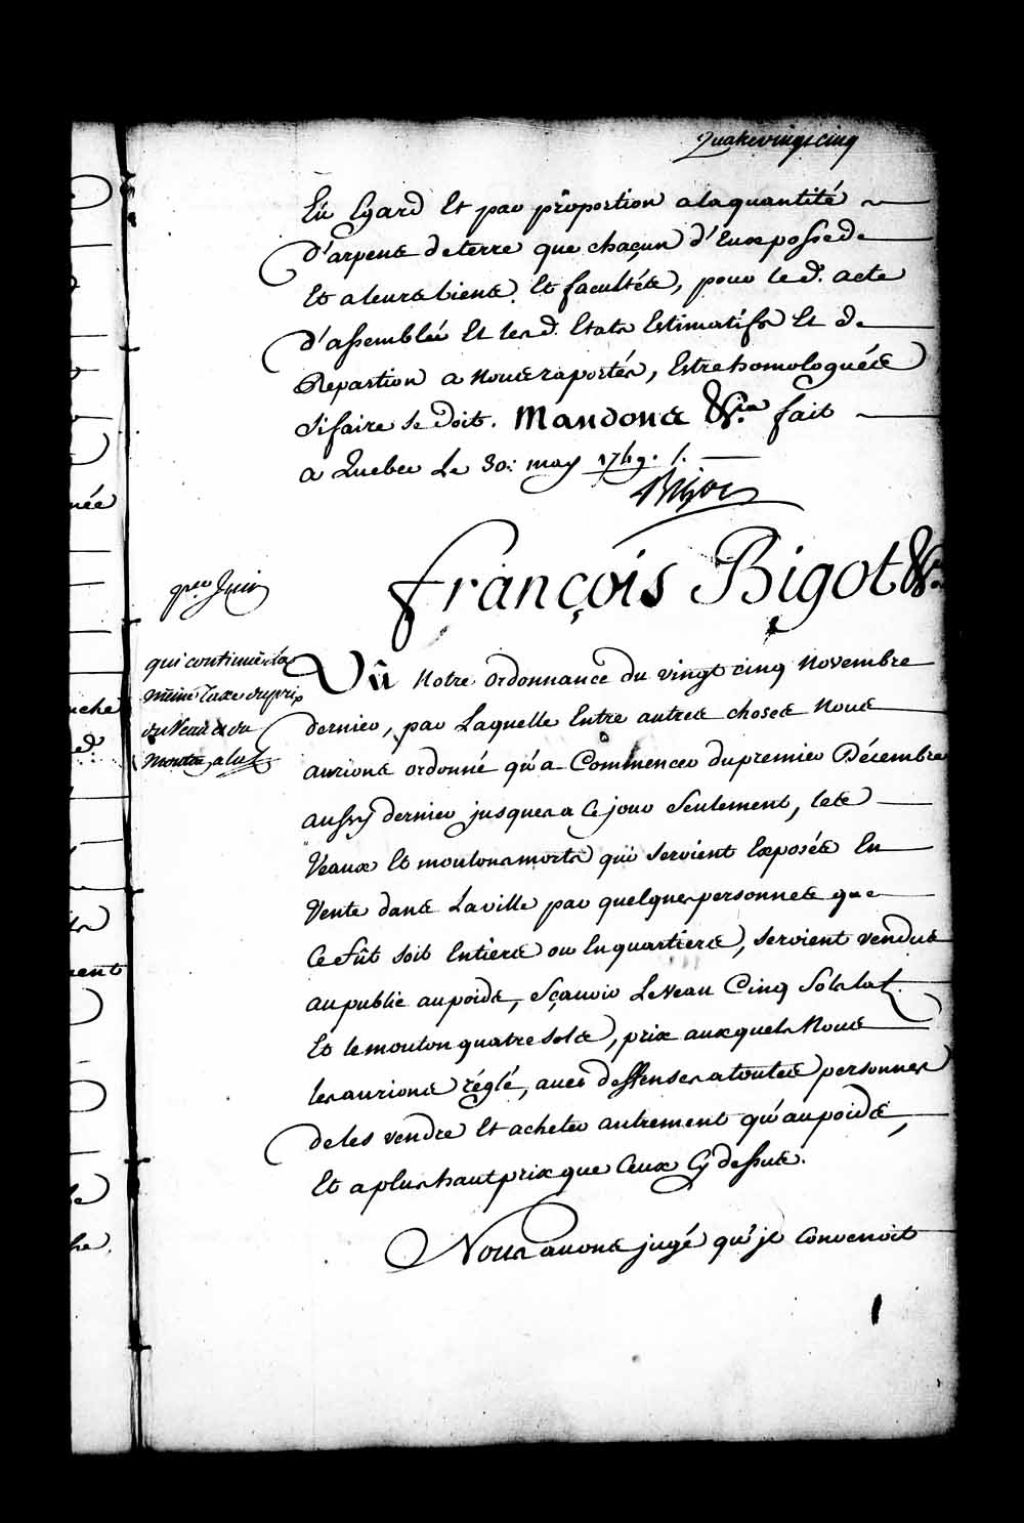 Quatrevingt cinq
Eû Egard Et par proportion a la quantité
d'arpens de terre que chaçun d'Eux possede
Et a leurs biens Et facultés, pour le d. acte
d'assemblée Et les d. Etats Estimatifs Et de
Repartion a Nous raportés, Estre homologués
si faire se doit. Mandons &c.a fait
a Quebec Le 30: may 1749. /.
Bigot
François Bigot &c.a
p.er Juin
qui continüe la
même Taxe du prix
du Veau et du
mouton a la ℔
Vû Notre ordonnance du vingt cinq Novembre
dernier, par Laquelle Entre autres choses Nous
aurions ordonné qu'a Commencer du premier Décembre
aussy dernier jusques a Ce jour Seulement, les
Veaux Et moutons morts qui seroient Exposés En
Vente dans La ville par quelques personnes que
Ce fût soit Entiers ou En quartiers, seroient vendus
au public au poids, sçavoir Le Veau Cinq Sols la ℔.
Et le mouton quatre sols, prix aux quels Nous
les aurions réglé, avec deffenses a toutes personnes
de les vendre Et acheter autrement qu'au poids,
Et a plus haut prix que Ceux Cy dessus.
Nous avons jugé qu'jl Convenoit
née
ent